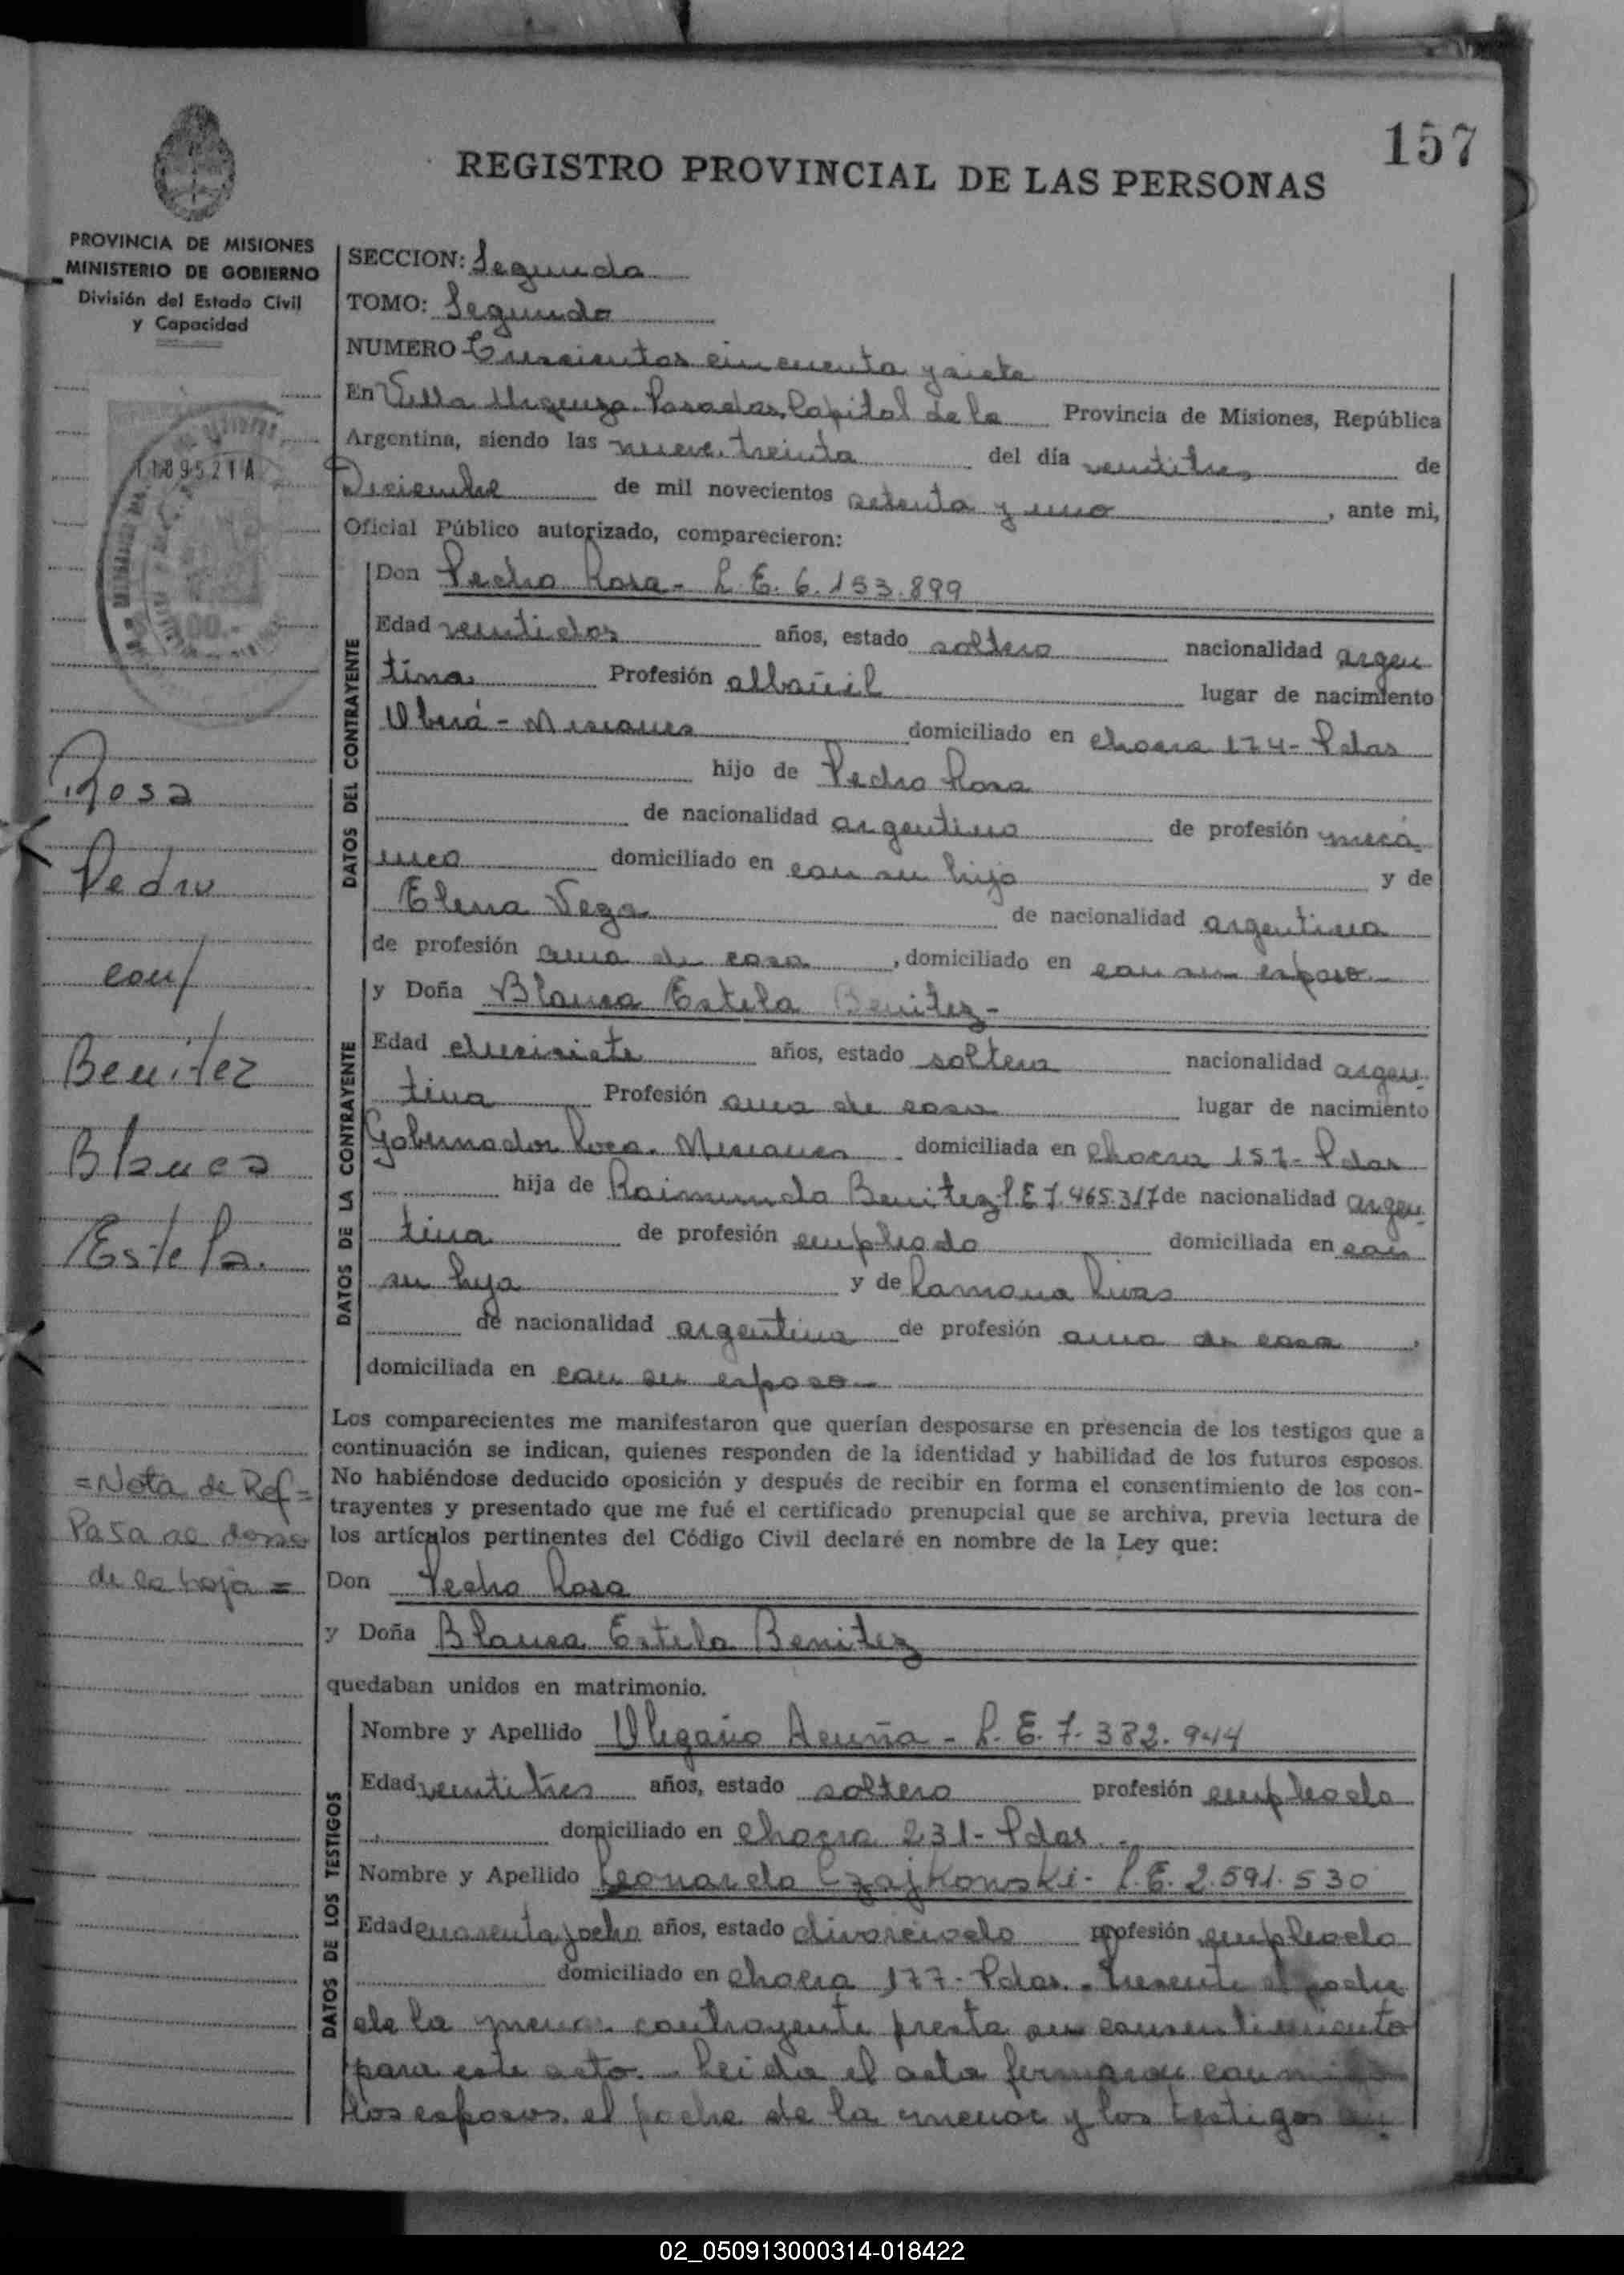 157
REGISTRO PROVINCIAL DE LAS PERSONAS
PROVINCIA DE MISIONES
MINISTERIO DE GOBIERNO
División del Estado Civil
y Capacidad
1189521A
100.-
Rosa
Pedro
con/
Benitez
Blanca
Estela.
=Nota de Ref=
Pasa al dorso
de la hoja =
SECCION: Segunda
TOMO: Segundo
NUMERO Trescientos cincuenta y siete
En Villa Urquiza Posadas, Capital de la Provincia de Misiones, República
Argentina, siendo las nueve treinta del día veintitres de
Diciembre de mil novecientos setenta y uno, ante mi,
Oficial Público autorizado, comparecieron:
DATOS DEL CONTRAYENTE
Don Pedro Rosa - L.E. 6.153.899
Edad veintidos años, estado soltero nacionalidad argen
tina Profesión albañil lugar de nacimiento
Oberá - Misiones domiciliado en chacra 174 - Pdas
hijo de Pedro Rosa
de nacionalidad argentino de profesión mecá
nico domiciliado en con su hijo y de
Elena Vega de nacionalidad argentina
de profesión ama de casa, domiciliado en con su esposo -
DATOS DE LA CONTRAYENTE
y Doña Blanca Estela Benitez -
Edad diecisiete años, estado soltera nacionalidad argen
tina Profesión ama de casa lugar de nacimiento
Gobernador Roca - Misiones domiciliada en chacra 157 - Pdas
hija de Raimundo Benitez L.E 7.465.317 de nacionalidad argen
tina de profesión empleado domiciliada en con
su hija y de Ramona Rivas
de nacionalidad argentina de profesión ama de casa,
domiciliada en con su esposo -
Los comparecientes me manifestaron que querían desposarse en presencia de los testigos que a
continuación se indican, quienes responden de la identidad y habilidad de los futuros esposos.
No habiéndose deducido oposición y después de recibir en forma el consentimiento de los con-
trayentes y presentado que me fué el certificado prenupcial que se archiva, previa lectura de
los artículos pertinentes del Código Civil declaré en nombre de la Ley que:
Don Pedro Rosa
y Doña Blanca Estela Benitez
quedaban unidos en matrimonio.
DATOS DE LOS TESTIGOS
Nombre y Apellido Olegario Acuña - L.E. 7.382.944
Edad veintitres años, estado soltero profesión empleado
domiciliado en chacra 231 - Pdas. -
Nombre y Apellido Leonardo Czajkowski - L.E. 2.591.530
Edad cuarenta y ocho años, estado divorciado profesión empleado
domiciliado en chacra 177 - Pdas. - Presente el padre
de la menor contrayente presta su consentimiento
para este acto. - Leida el acta firmaron conmigo
los esposos, el padre de la menor y los testigos
02_050913000314-018422